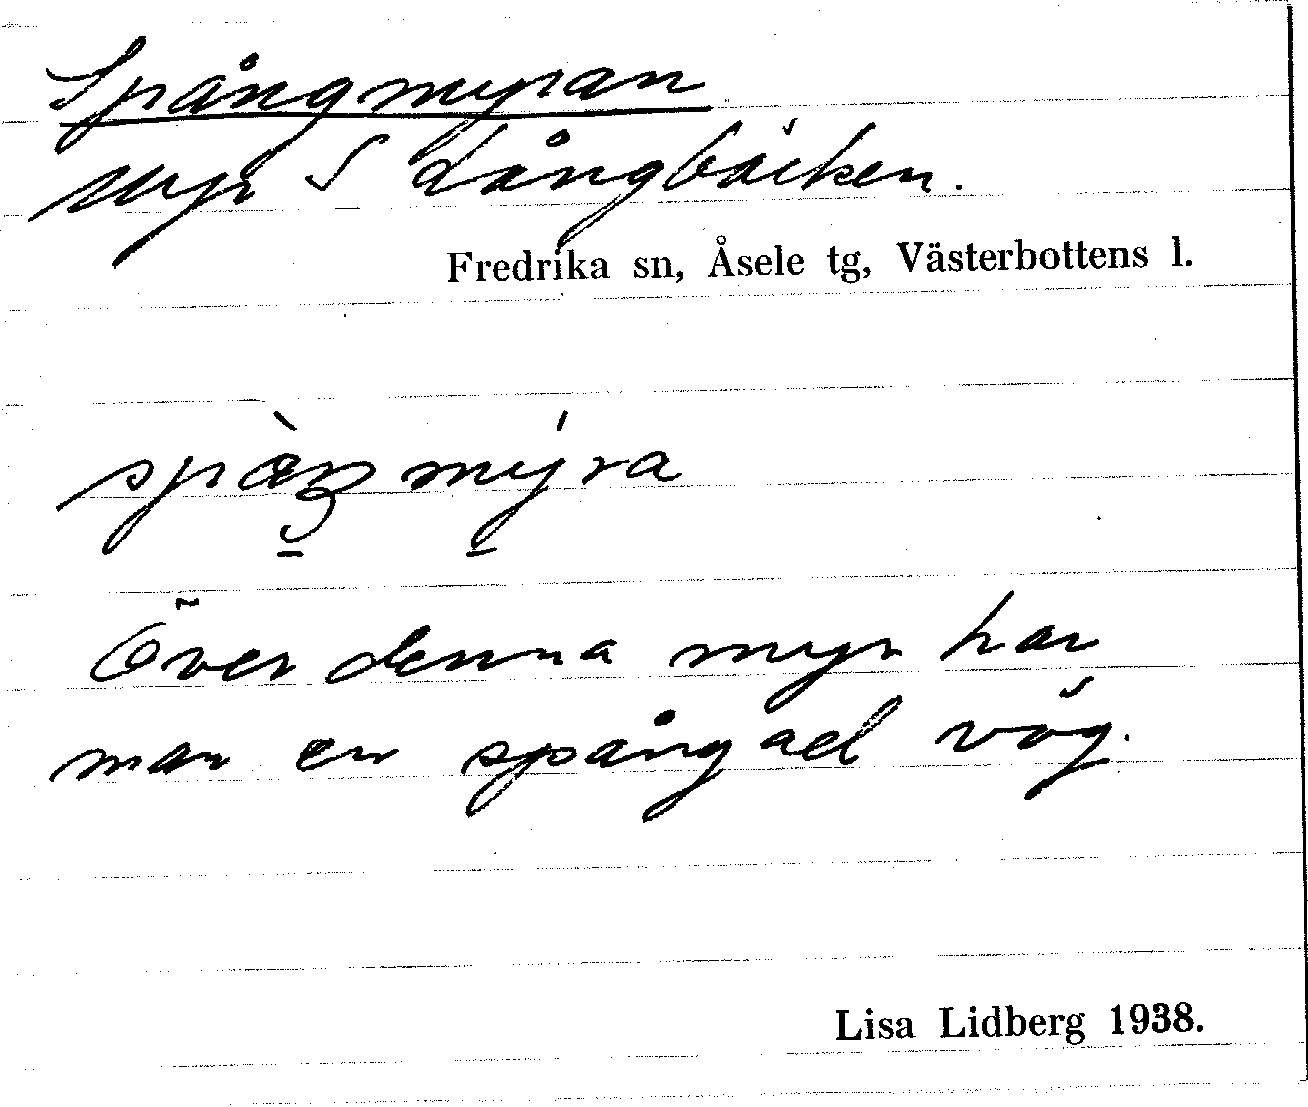 Spångmyran
Myr S Långbäcken.
Fredrika sn, Åsele tg, Västerbottens l.
spàŋmýra
Över denna myr har
man en spångad väg.
Lisa Lidberg 1938.